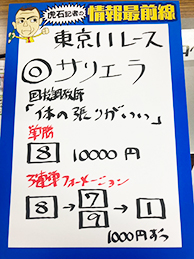 虎石記者の
情報最前線
東京11レース
◎サリエラ
国枝調教師
「体の張りがいい」
単勝
8 10000円
3連単フォーメーション
8→7 9→1
1000円ずつ